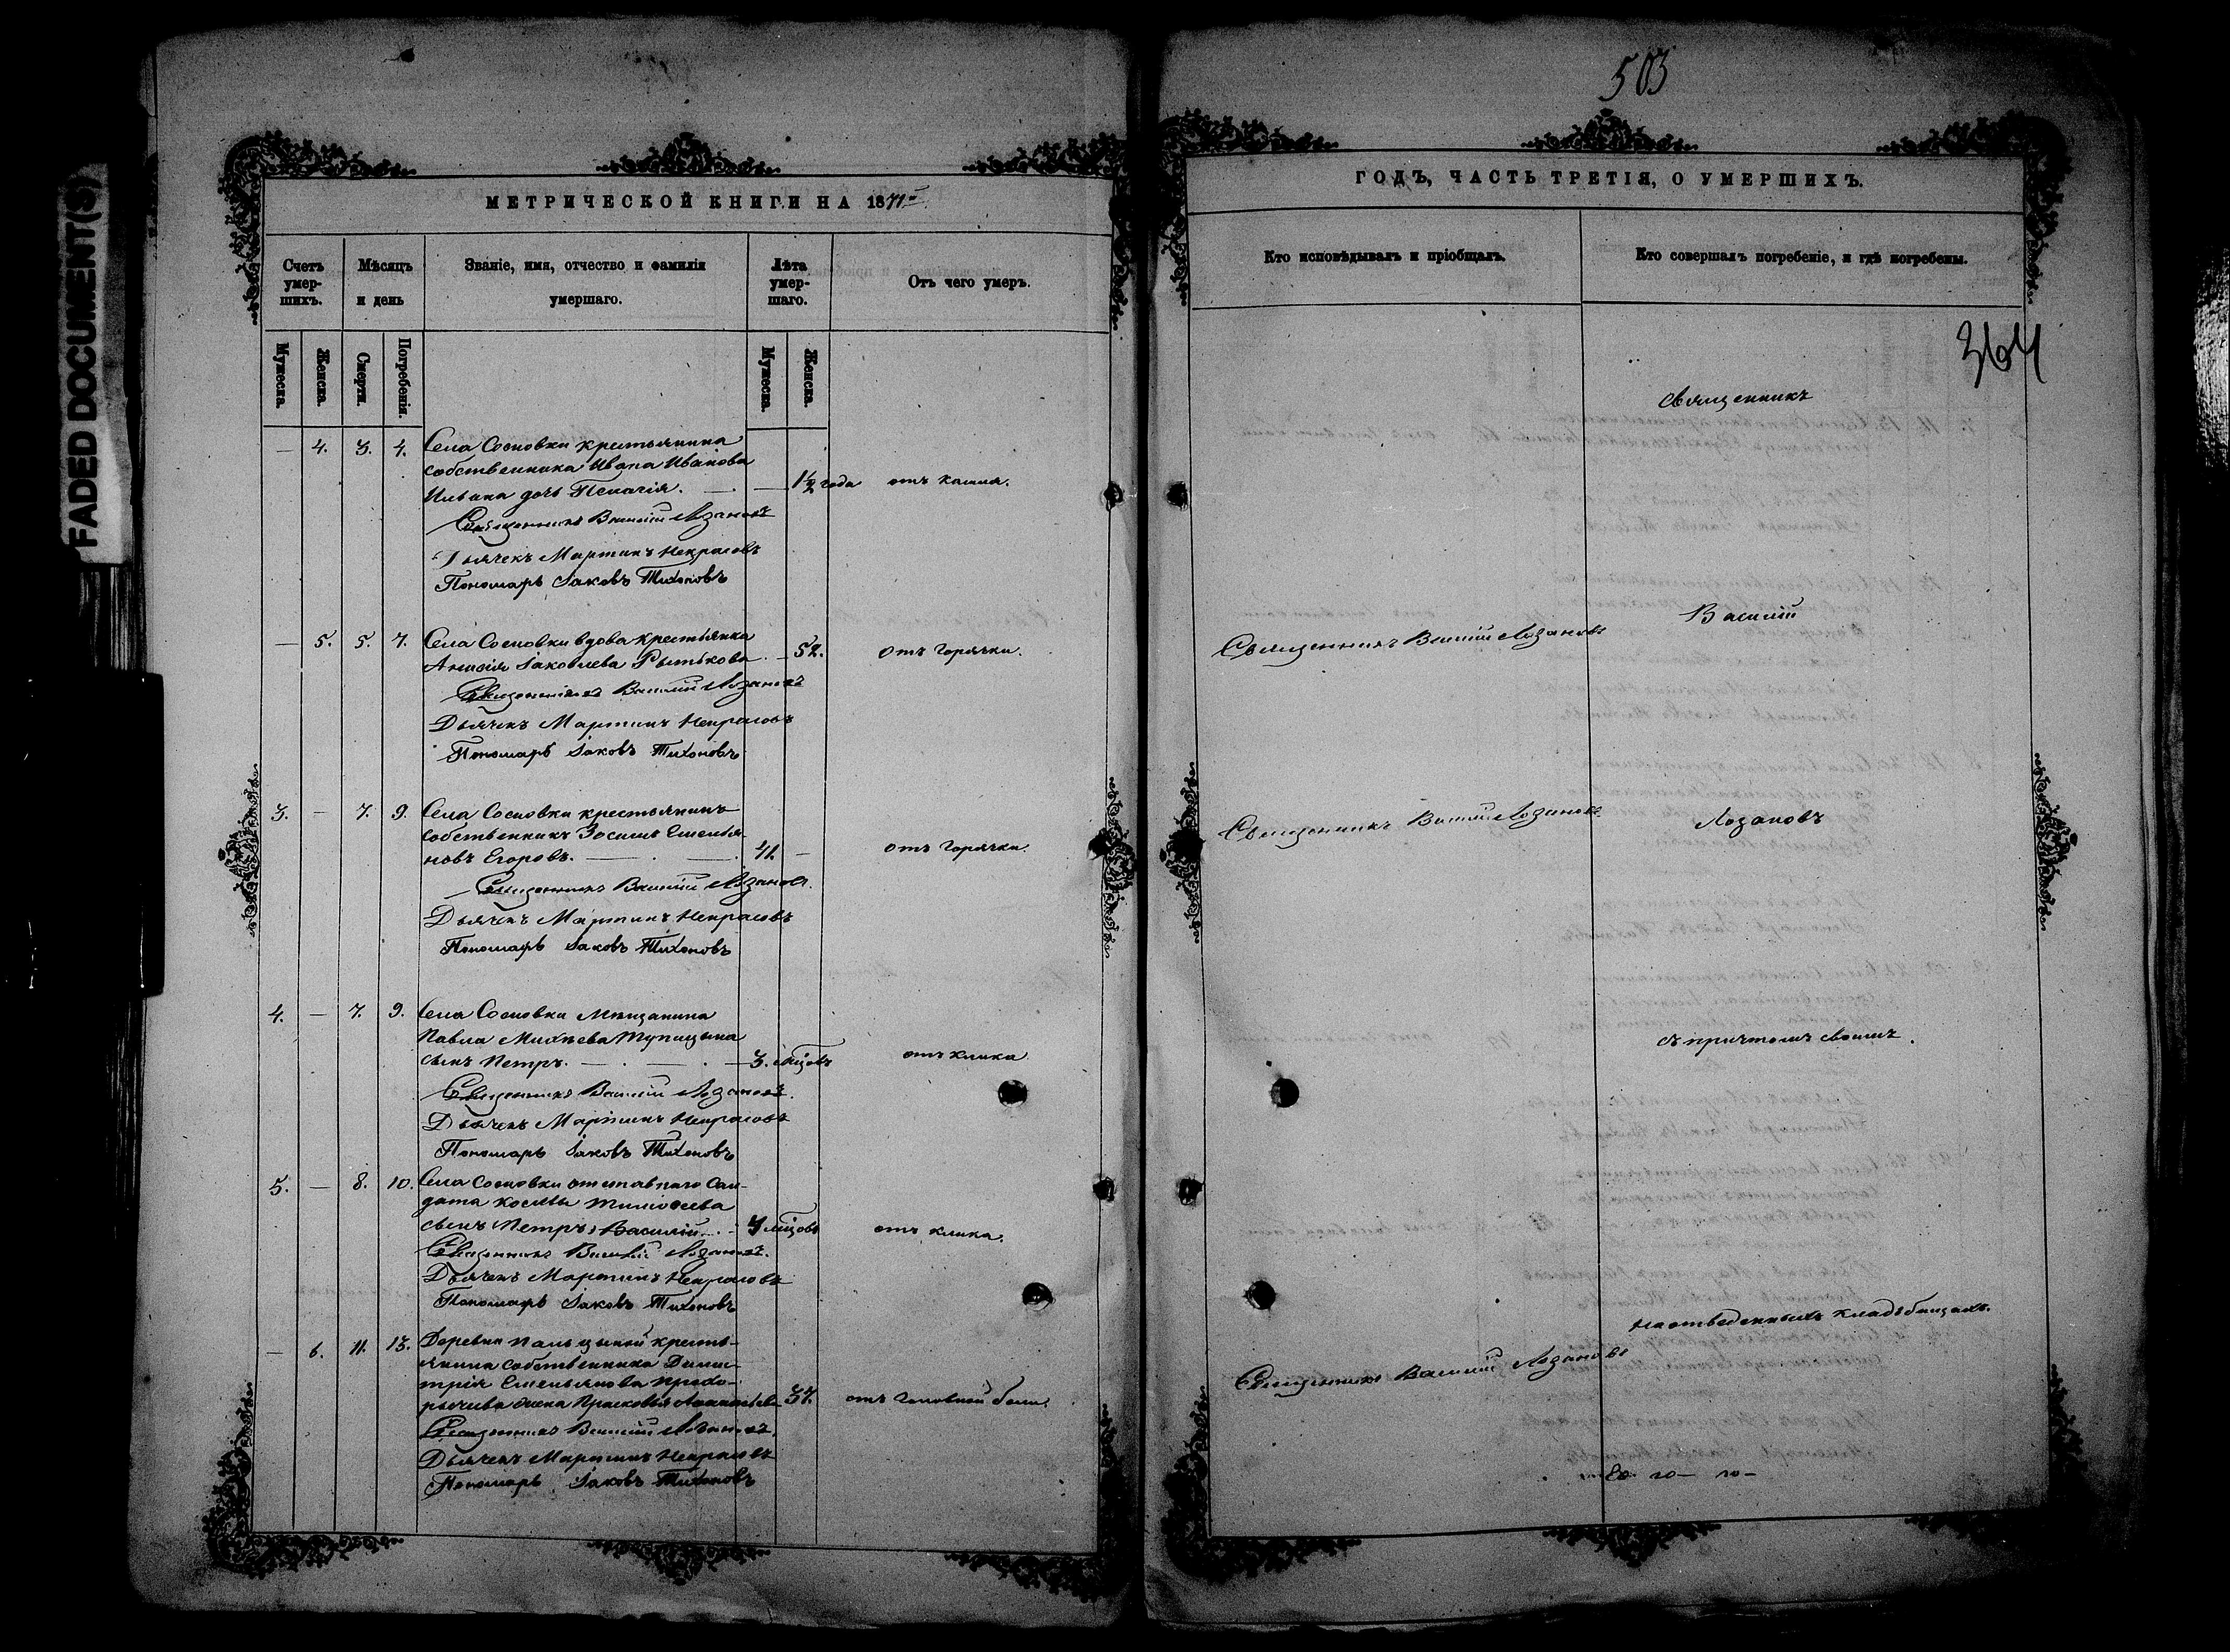 FADED DOCUMENT(S)
МЕТРИЧЕСКОЙ КНИГИ НА 1871й
Счетъ умер-шихъ.
Мѣсяцъ и день
Званіе, имя, отчество и фамилія умершаго.
Лѣта умер-шаго.
Отъ чего умеръ.
Мужеска.
Женска.
Смерти.
Погребенія.
Мужеска.
Женска.
— 4. 3. 4. Села Сосновки крестьянина
собственника Ивана Иванова
дочь Пелагія. — — 1½ года отъ кашля.
Священникъ Василій Лозановъ
Дьячекъ Мартинъ Некрасовъ
Пономарь Іаковъ Тихоновъ
— 5. 5. 7. Села Сосновки вдова крестьянка
Анисія Іаковлева Рытькова. — 52. отъ горячки.
Священникъ Василій Лозановъ
Дьячекъ Мартинъ Некрасовъ
Пономарь Іаковъ Тихоновъ
3. — 7. 9. Села Сосновки крестьянинъ
собственникъ Зосимъ Емелья-
новъ Егоровъ. — 41. — отъ горячки.
Священникъ Василій Лозановъ.
Дьячекъ Мартинъ Некрасовъ
Пономарь Іаковъ Тихоновъ
4. — 7. 9. Села Сосновки мѣщанина
Павла Михѣева Тупицына
сынъ Петръ. — 3. мѣцовъ отъ клика
Священникъ Василій Лозановъ.
Дьячекъ Мартинъ Некрасовъ
Пономарь Іаковъ Тихоновъ
5. — 8. 10. Села Сосновки отставнаго сол-
дата Косьмы Тимоѳеева
сынъ Петръ, Василій. — мѣцовъ отъ клика.
Священникъ Василій Лозановъ.
Дьячекъ Мартинъ Некрасовъ
Пономарь Іаковъ Тихоновъ
— 6. 11. 13. Деревни Пальцыной кресть-
янина собственника Дими-
трія Емельянова Прохо-
рычива жена Прасковья 37. отъ головной боли.
Священникъ Василій Лозановъ.
Дьячекъ Мартинъ Некрасовъ
Пономарь Іаковъ Тихоновъ
503
ГОДЪ, ЧАСТЬ ТРЕТІЯ, О УМЕРШИХЪ.
Кто исповѣдывалъ и пріобщалъ.
Кто совершалъ погребеніе, и гдѣ погребены.
364
священникъ
Василій
Священникъ Василій Лозановъ
Лозановъ
Священникъ Василій Лозановъ
съ причтомъ своимъ.
на отведенныхъ кладьбищахъ.
Священникъ Василій Лозановъ